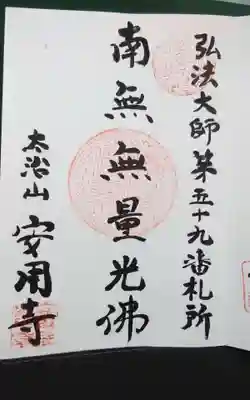 弘法大師第五十九番札所
南無無量光佛
太治山
安用寺